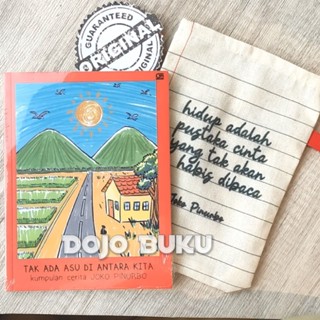 GUARANTEED
ORIGINAL
ORIGINAL
hidup adalah
pustaka cinta
yang tak akan
habis dibaca
Joko Pinurbo
DOJO BUKU
TAK ADA ASU DI ANTARA KITA
kumpulan cerita JOKO PINURBO